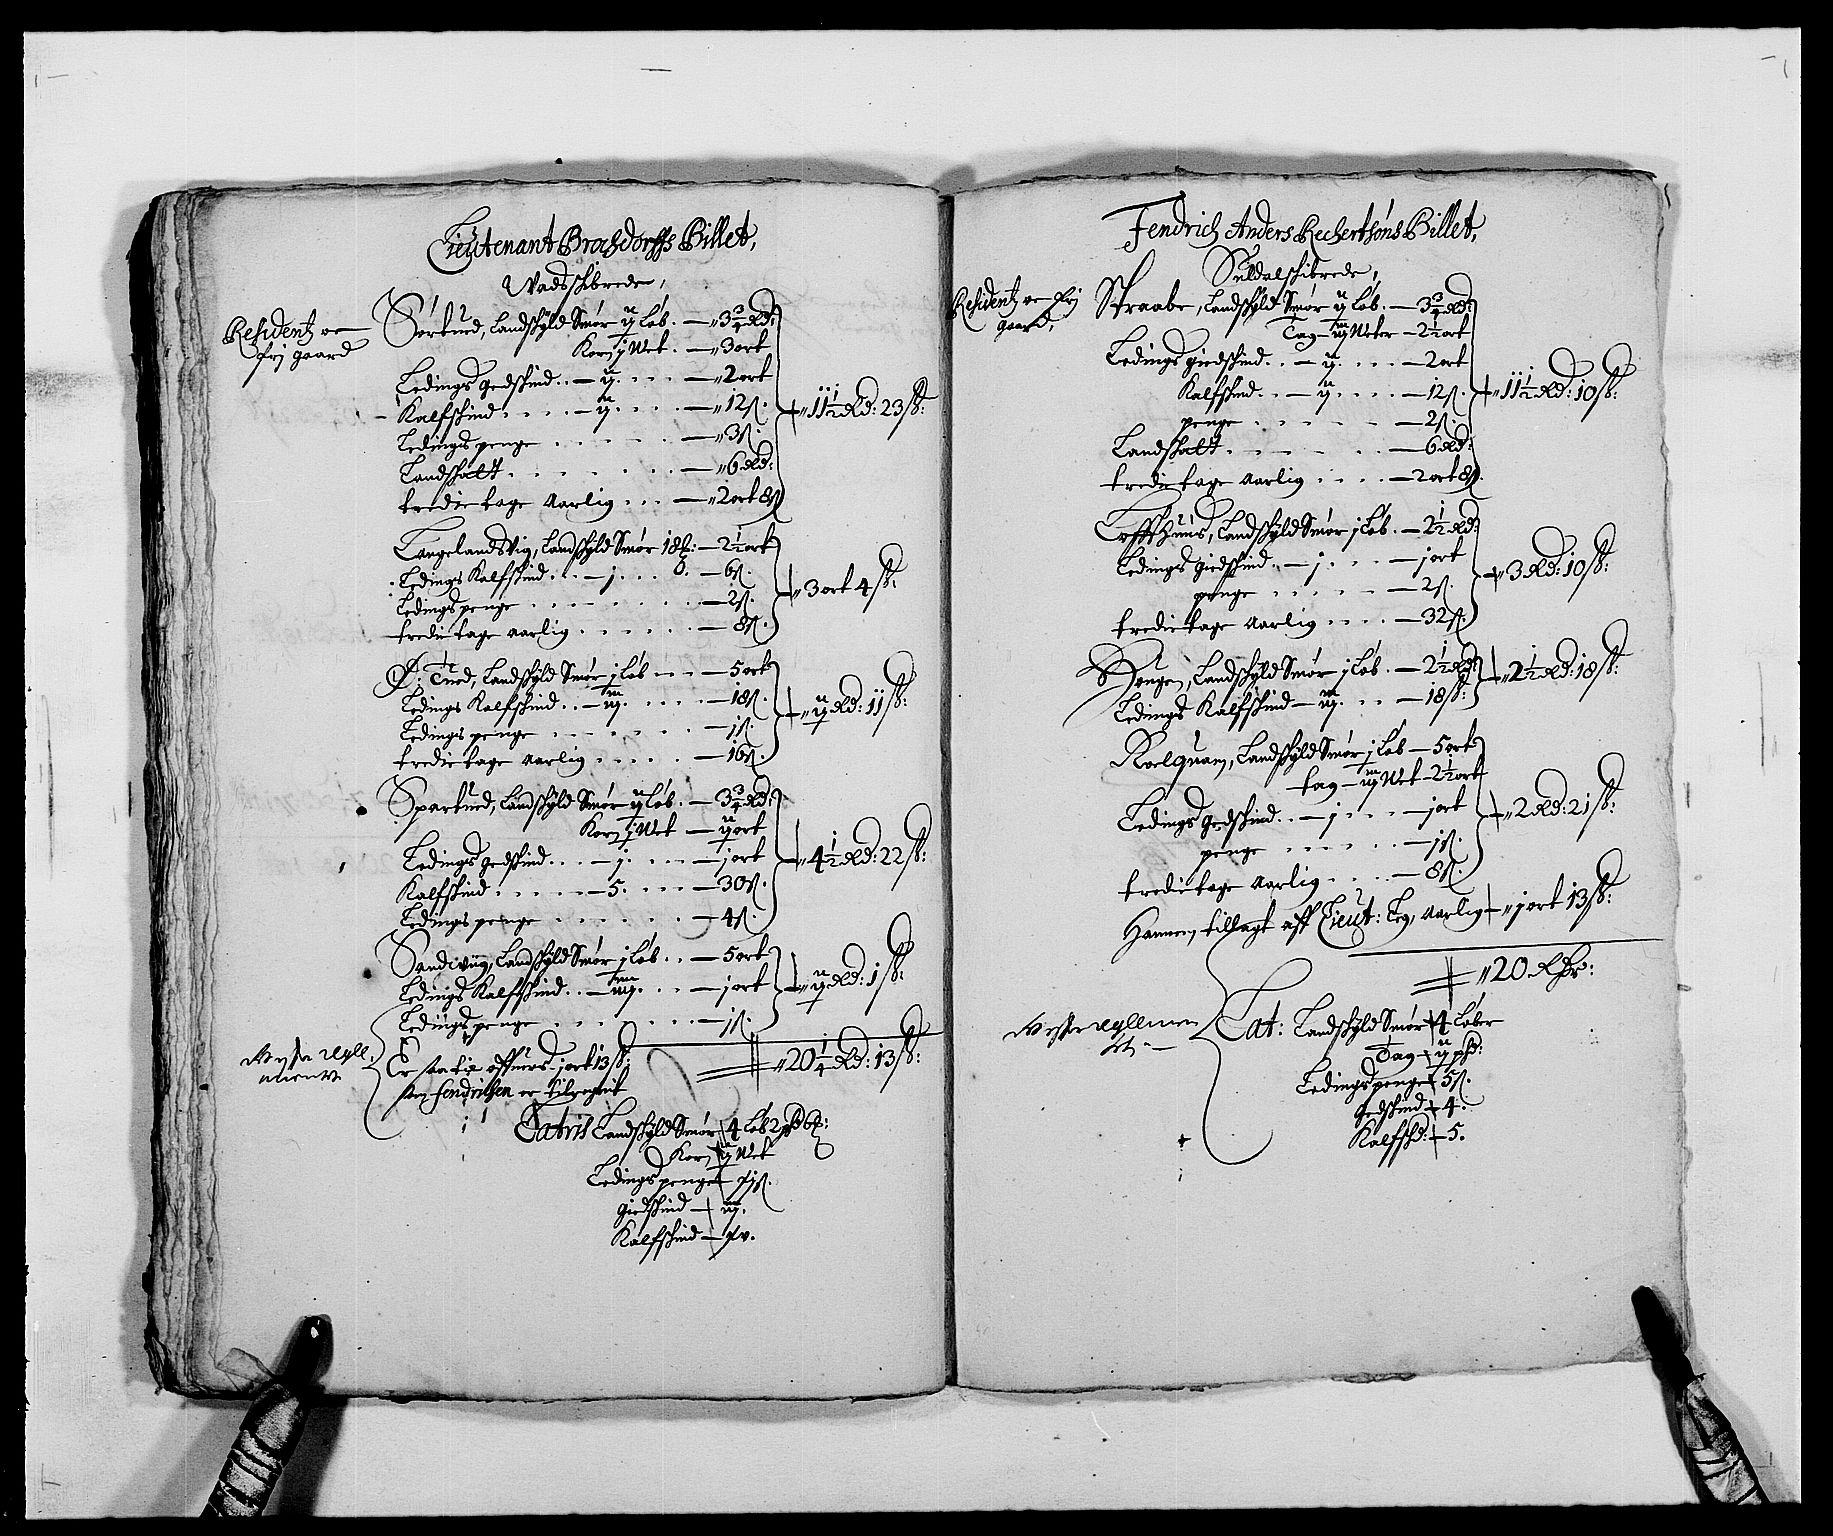 Lieutenant Brochdorffs Billet,
Wadsschibrede,
Residentz og frj gaard
Sørtued, Landschÿld Smør ij Løb. — 3¾ Rd:
Korn j Wet. — 3 ort
Ledings gedschind . . — ij . . . . — 2 ort
Kalfschind . . . . — ij . . . . — 12 ß.
Ledings penge . . . . . . — 3 ß.
Landschatt . . . . . . . — 6 Rd:
tredie tage aarlig . . . — 2 ort 8 ß
11½ Rd: 23 ß:
Langelandsvig, Landschÿld Smør 18 ℔: — 2½ ort
Ledings Kalfschind . . — j . . . — 6 ß.
Ledings penge . . . . . . . — 2 ß.
tredie tage aarlig . . . . . . — 8 ß.
3 ort 4 ß:
Ø: Tued, Landschÿld Smør j Løb — 5 ort
Ledings Kalfschind . . — iij . . . . — 18 ß.
Ledings penge . . . . . . . — j ß.
tredie tage aarlig . . . . . — 16 ß.
ij Rd: 11 ß:
Spartued, Landschÿld Smør ij Løb. — 3¾ Rd:
Korn j Wet — ij ort
Ledings gedschind . . . — j . . . — j ort
Kalfschind . . . . . — 5 . . . . — 30 ß.
Ledings penge . . . . . . — 4 ß.
4½ Rd: 22 ß:
Sandwiig, Landschÿld Smør j Løb . . — 5 ort
Ledings Kalfschind . . — iiij . . . — j ort
Ledings penge . . . . . . . — j ß.
ij Rd: 1 ß:
Er saa tje offuers j ort 13 ß:
som fendrichen er tilregnit
20¼ Rd: 13 ß:
Latris Landschÿld Smør 4 Løb 2 pd 6 ℔:
Korn ij Wet
Ledings penge xj ß.
giedschind — iij.
Kalfschind — xv.
Fendrich Anders Rechertsøns Billet,
Suldalschibrede,
Residentz og frj gaard,
Straabe, Landschÿld Smør ij Løb. — 3¾ Rd:
Tag — iij Weter — 2½ ort
Ledings giedschind . . — ij . . . . — 2 ort
Kalfschind . . — ij . . . . — 12 ß.
penge . . . . . . — 2 ß.
Landschatt . . . . . . — 6 Rd:
tredie tage aarlig . . . . — 2 ort 8 ß.
11½ Rd: 10 ß:
Loffthuus, Landschÿld Smør j Løb. — 2½ Rd:
Ledings giedschind . . — j . . . — j ort
penge . . . . . — 2 ß.
tredie tage aarlig . . . . — 32 ß.
3 Rd: 10 ß:
Landschÿld Smør j Løb. — 2½ Rd:
Ledings Kalfschind — iij . . . — 18 ß:
2½ Rd: 18 ß:
Roelquam, Landschÿld Smør j Løb — 5 ort
tag — iij Wet — 2½ ort
Ledings gedschind . . — j . . . . — j ort
penge . . . . . . — j ß.
tredie tage aarlig . . . . — 8 ß.
2 Rd: 21 ß:
Hannem tillagt aff Lieut: Leg, Aarlig — j ort 13 ß:
20 Rdr:
Lat: Landschÿld Smør 4 Løber
Tag — ij pd:
Ledings penge 5 ß.
gedschind — 4.
Kalfschd: — 5.